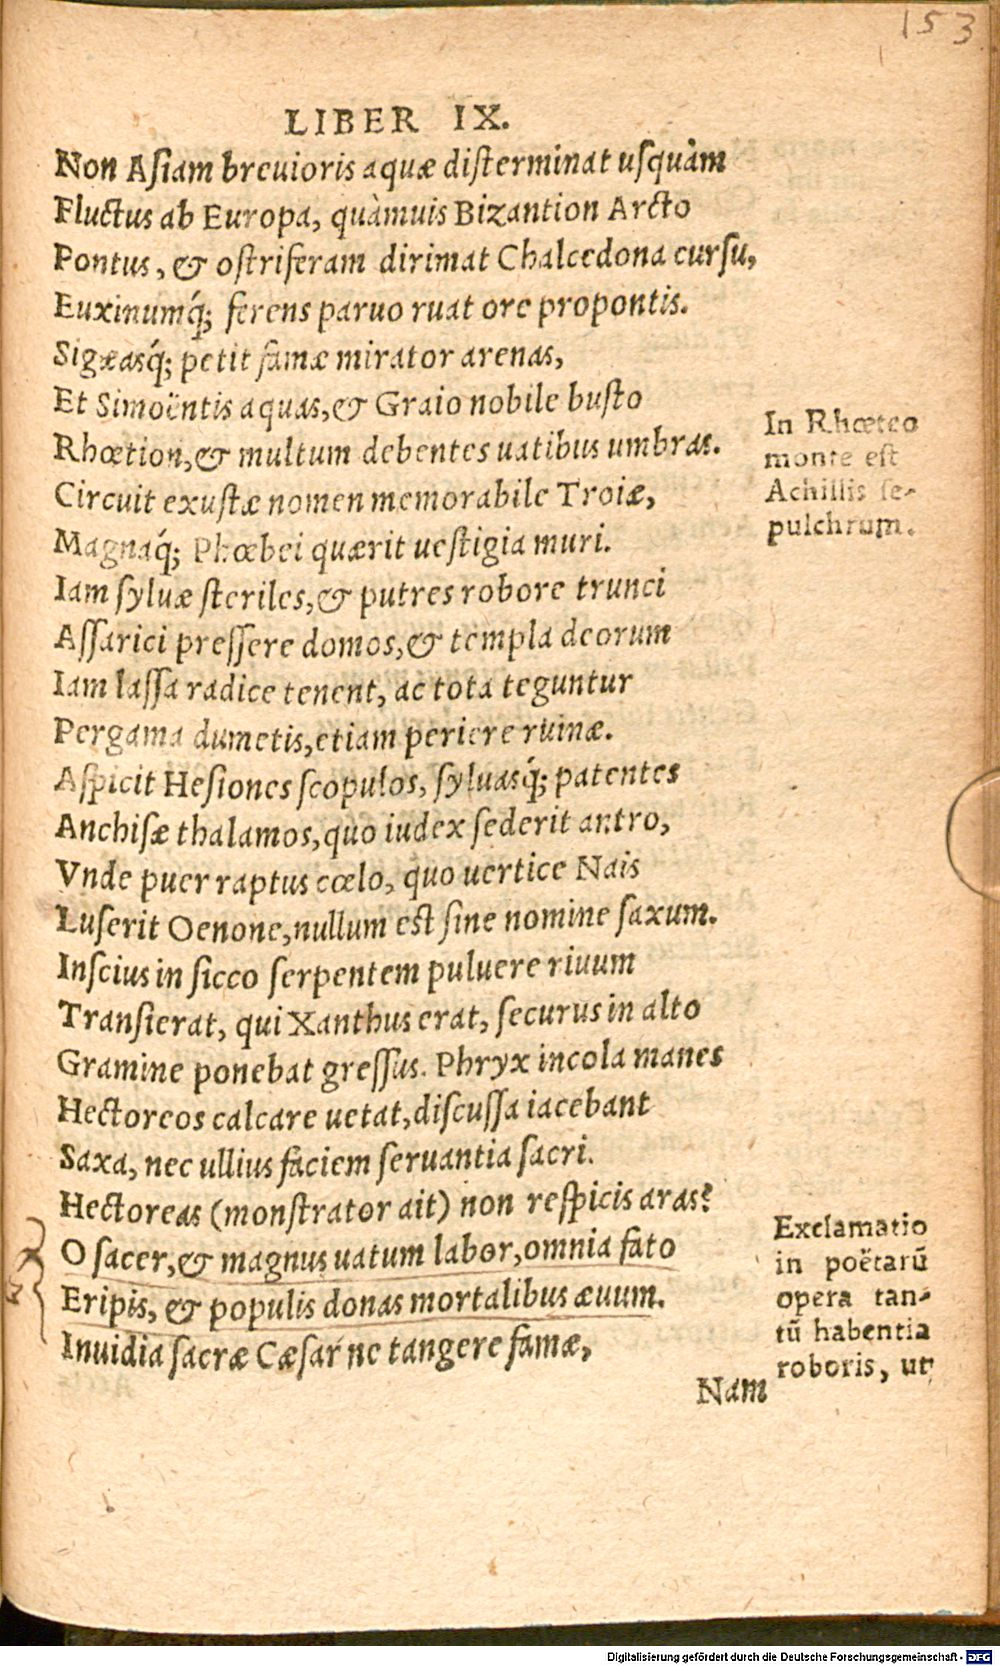 153
LIBER IX.
Non Asiam breuioris aquæ disterminat usquàm
Fluctus ab Europa, quàmuis Bizantion Arcto
Pontus, & ostriferam dirimat Chalcedona cursu,
Euxinumq́; ferens paruo ruat ore propontis.
Sigæasq́; petit famæ mirator arenas,
Et Simoëntis aquas, & Graio nobile busto
Rhœtion, & multum debentes uatibus umbras.
Circuit exustæ nomen memorabile Troiæ,
Magnaq́; Phœbei quærit uestigia muri.
Iam syluæ steriles, & putres robore trunci
Assarici pressere domos, & templa deorum
Iam lassa radice tenent, ac tota teguntur
Pergama dumetis, etiam periere ruinæ.
Aspicit Hesiones scopulos, syluasq́; patentes
Anchisæ thalamos, quo iudex sederit antro,
Vnde puer raptus cœlo, quo uertice Nais
Luserit Oenone, nullum est sine nomine saxum.
Inscius in sicco serpentem puluere riuum
Transierat, qui Xanthus erat, securus in alto
Gramine ponebat gressus. Phryx incola manes
Hectoreos calcare uetat, discussa iacebant
Saxa, nec ullius faciem seruantia sacri.
Hectoreas (monstrator ait) non respicis aras?
O sacer, & magnus uatum labor, omnia fato
Eripis, & populis donas mortalibus æuum.
Inuidia sacræ Cæsar ne tangere famæ,
Nam
In Rhœteo
monte est
Achillis se-
pulchrum.
Exclamatio
in poëtarū
opera tan-
tū habentia
roboris, ut
Digitalisierung gefördert durch die Deutsche Forschungsgemeinschaft - DFG